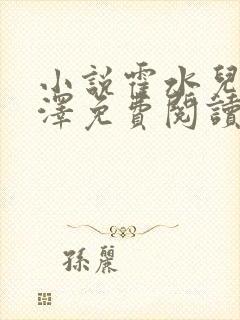 小說霍水兒
澤免費閱讀
孫麗